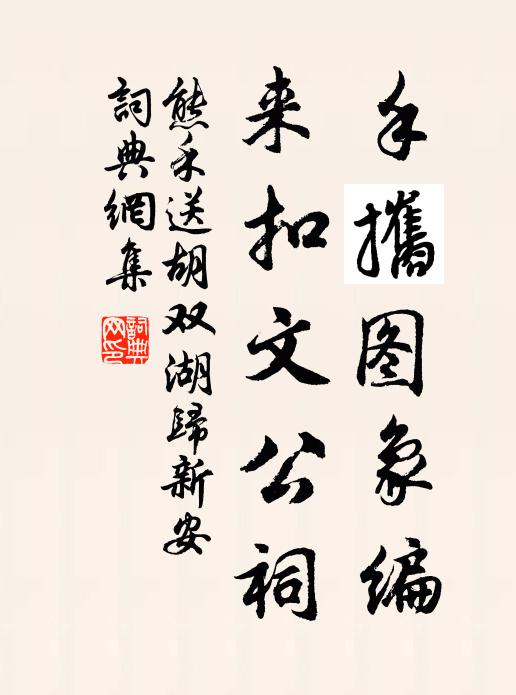 手攜图象编
来扣文公祠
熊禾送胡双湖歸新安
詞典網集
詞典
网印